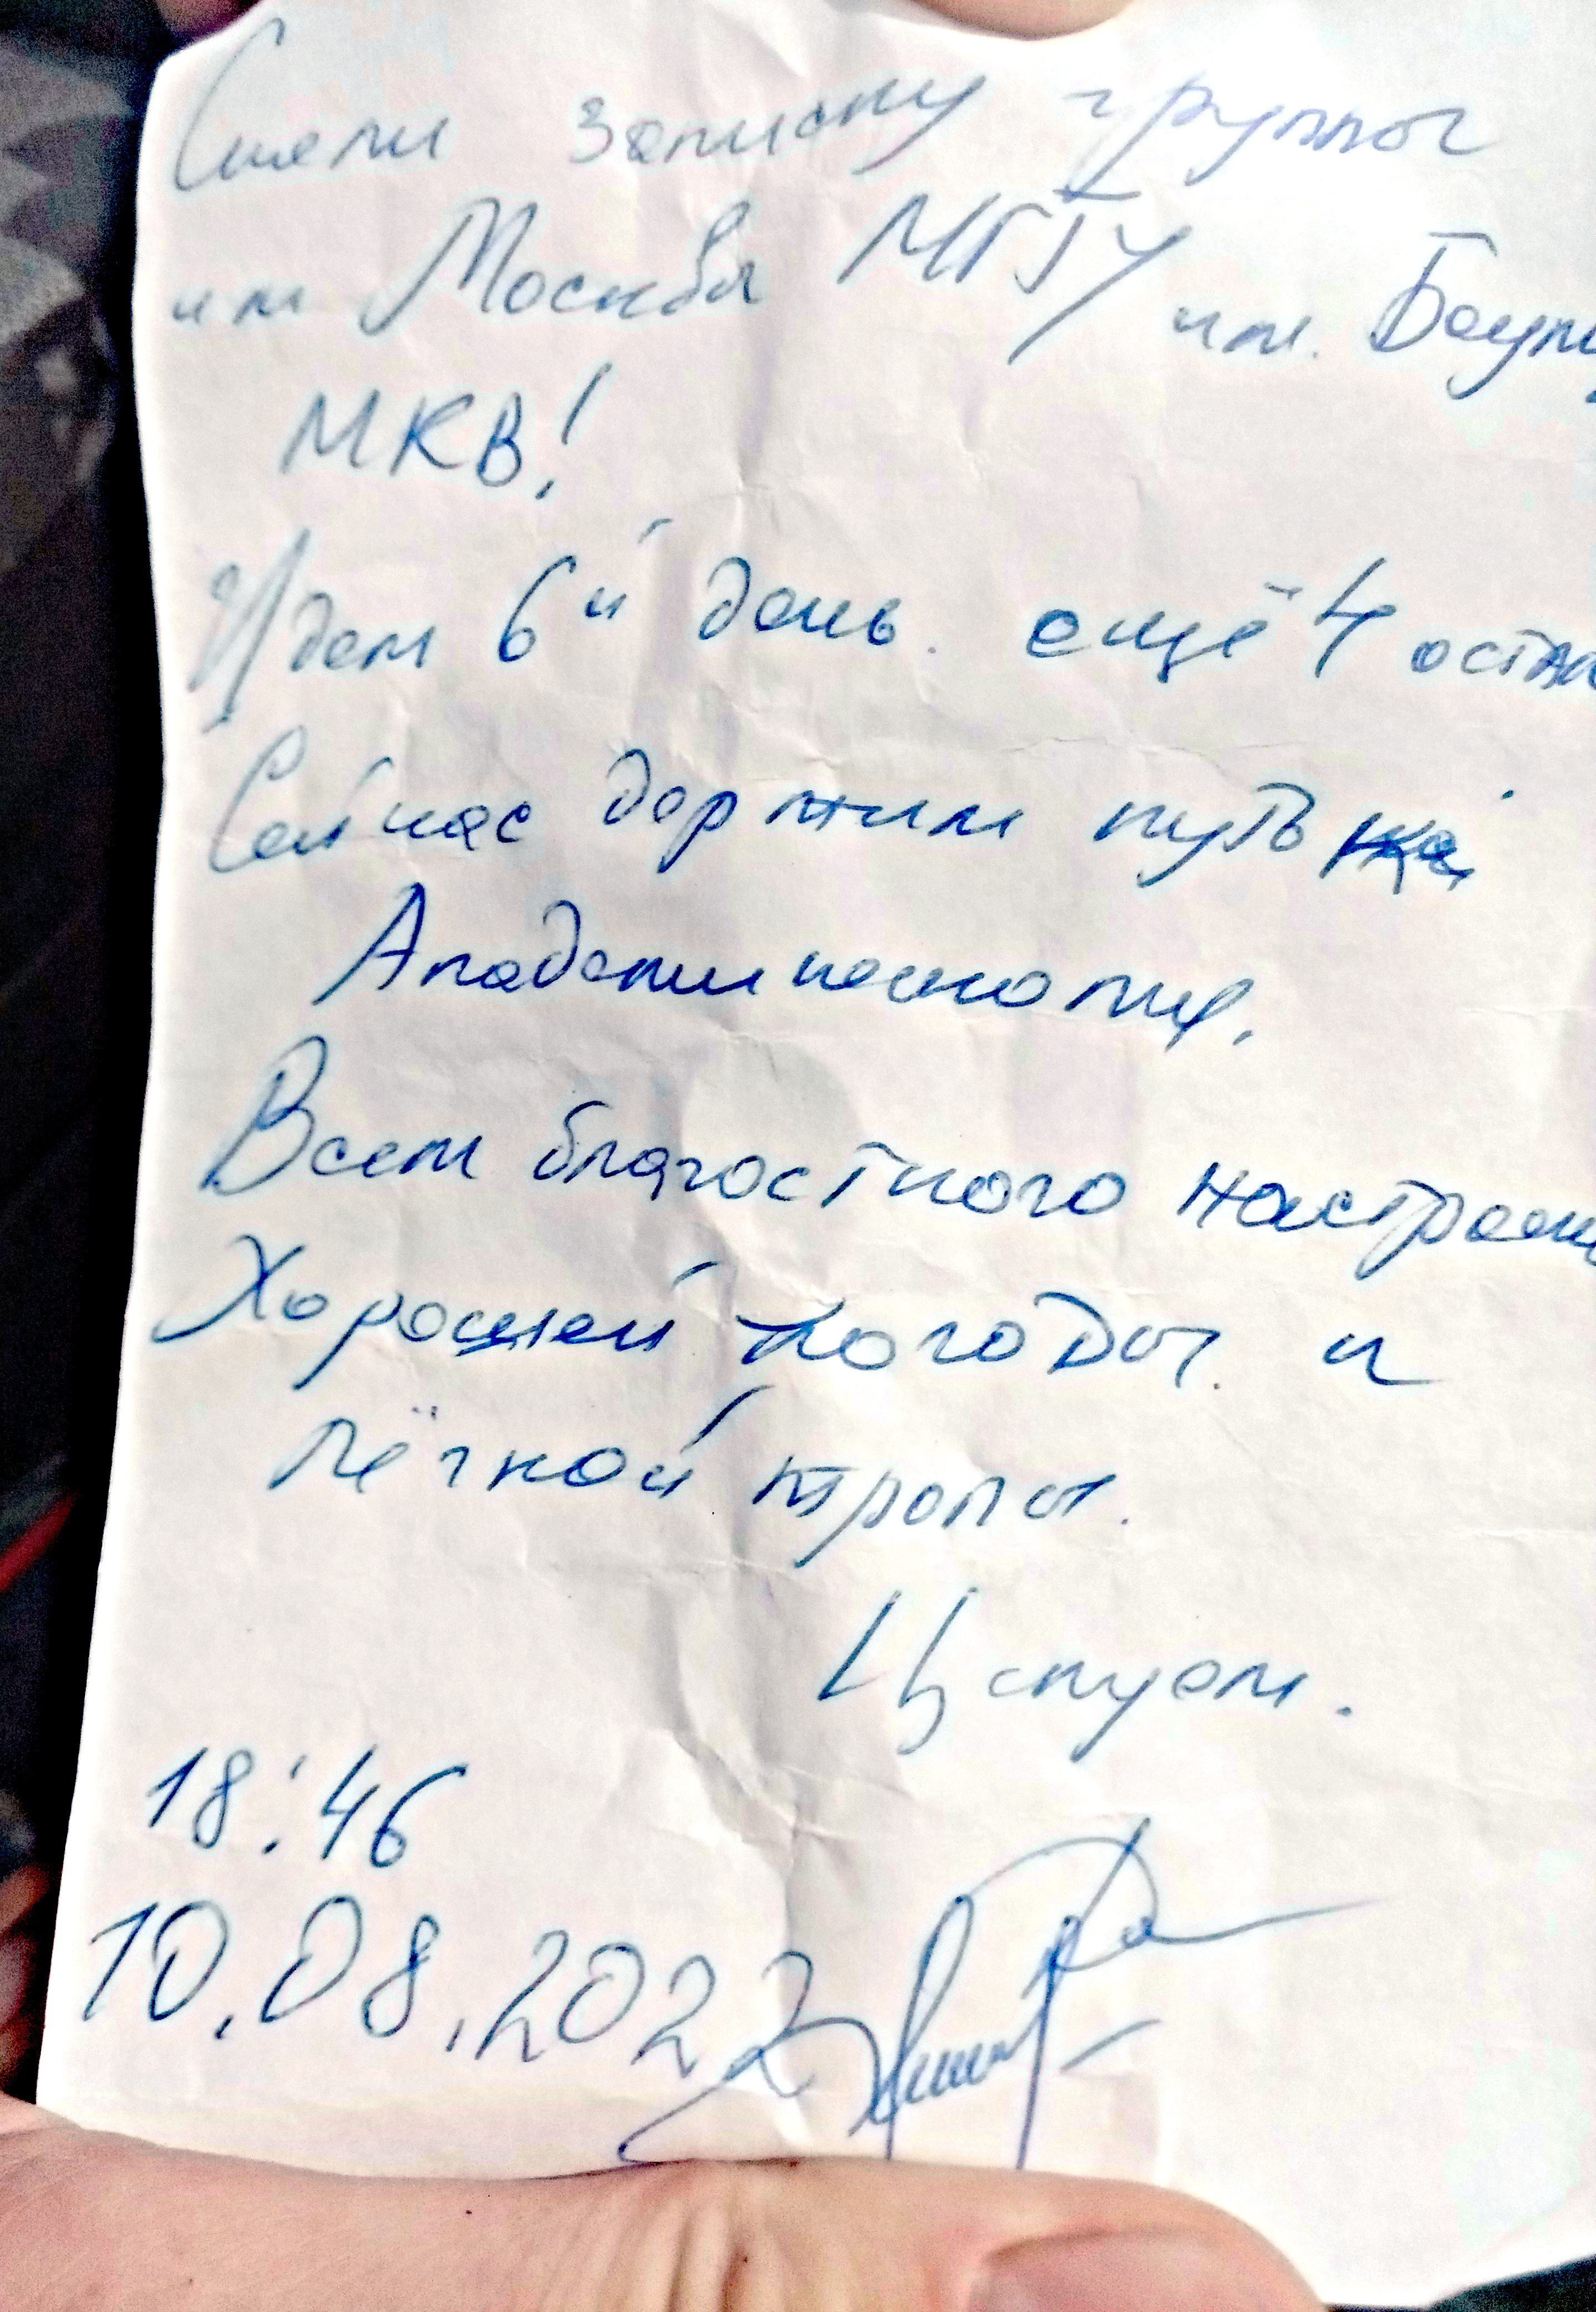 Сняли записку группы
им Москва МГТУ им. Баум
МКВ!
Идем 6й день. ещё 4 оста
Сейчас держим путь на
Академический пик.
Всем благостного настроен
Хорошей погоды и
лёгкой тропы.
Целуем.
18:46
10.08.2022